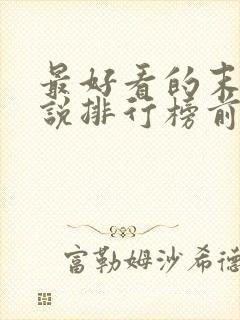 最好看的末
说排行榜前
富勒姆沙希德